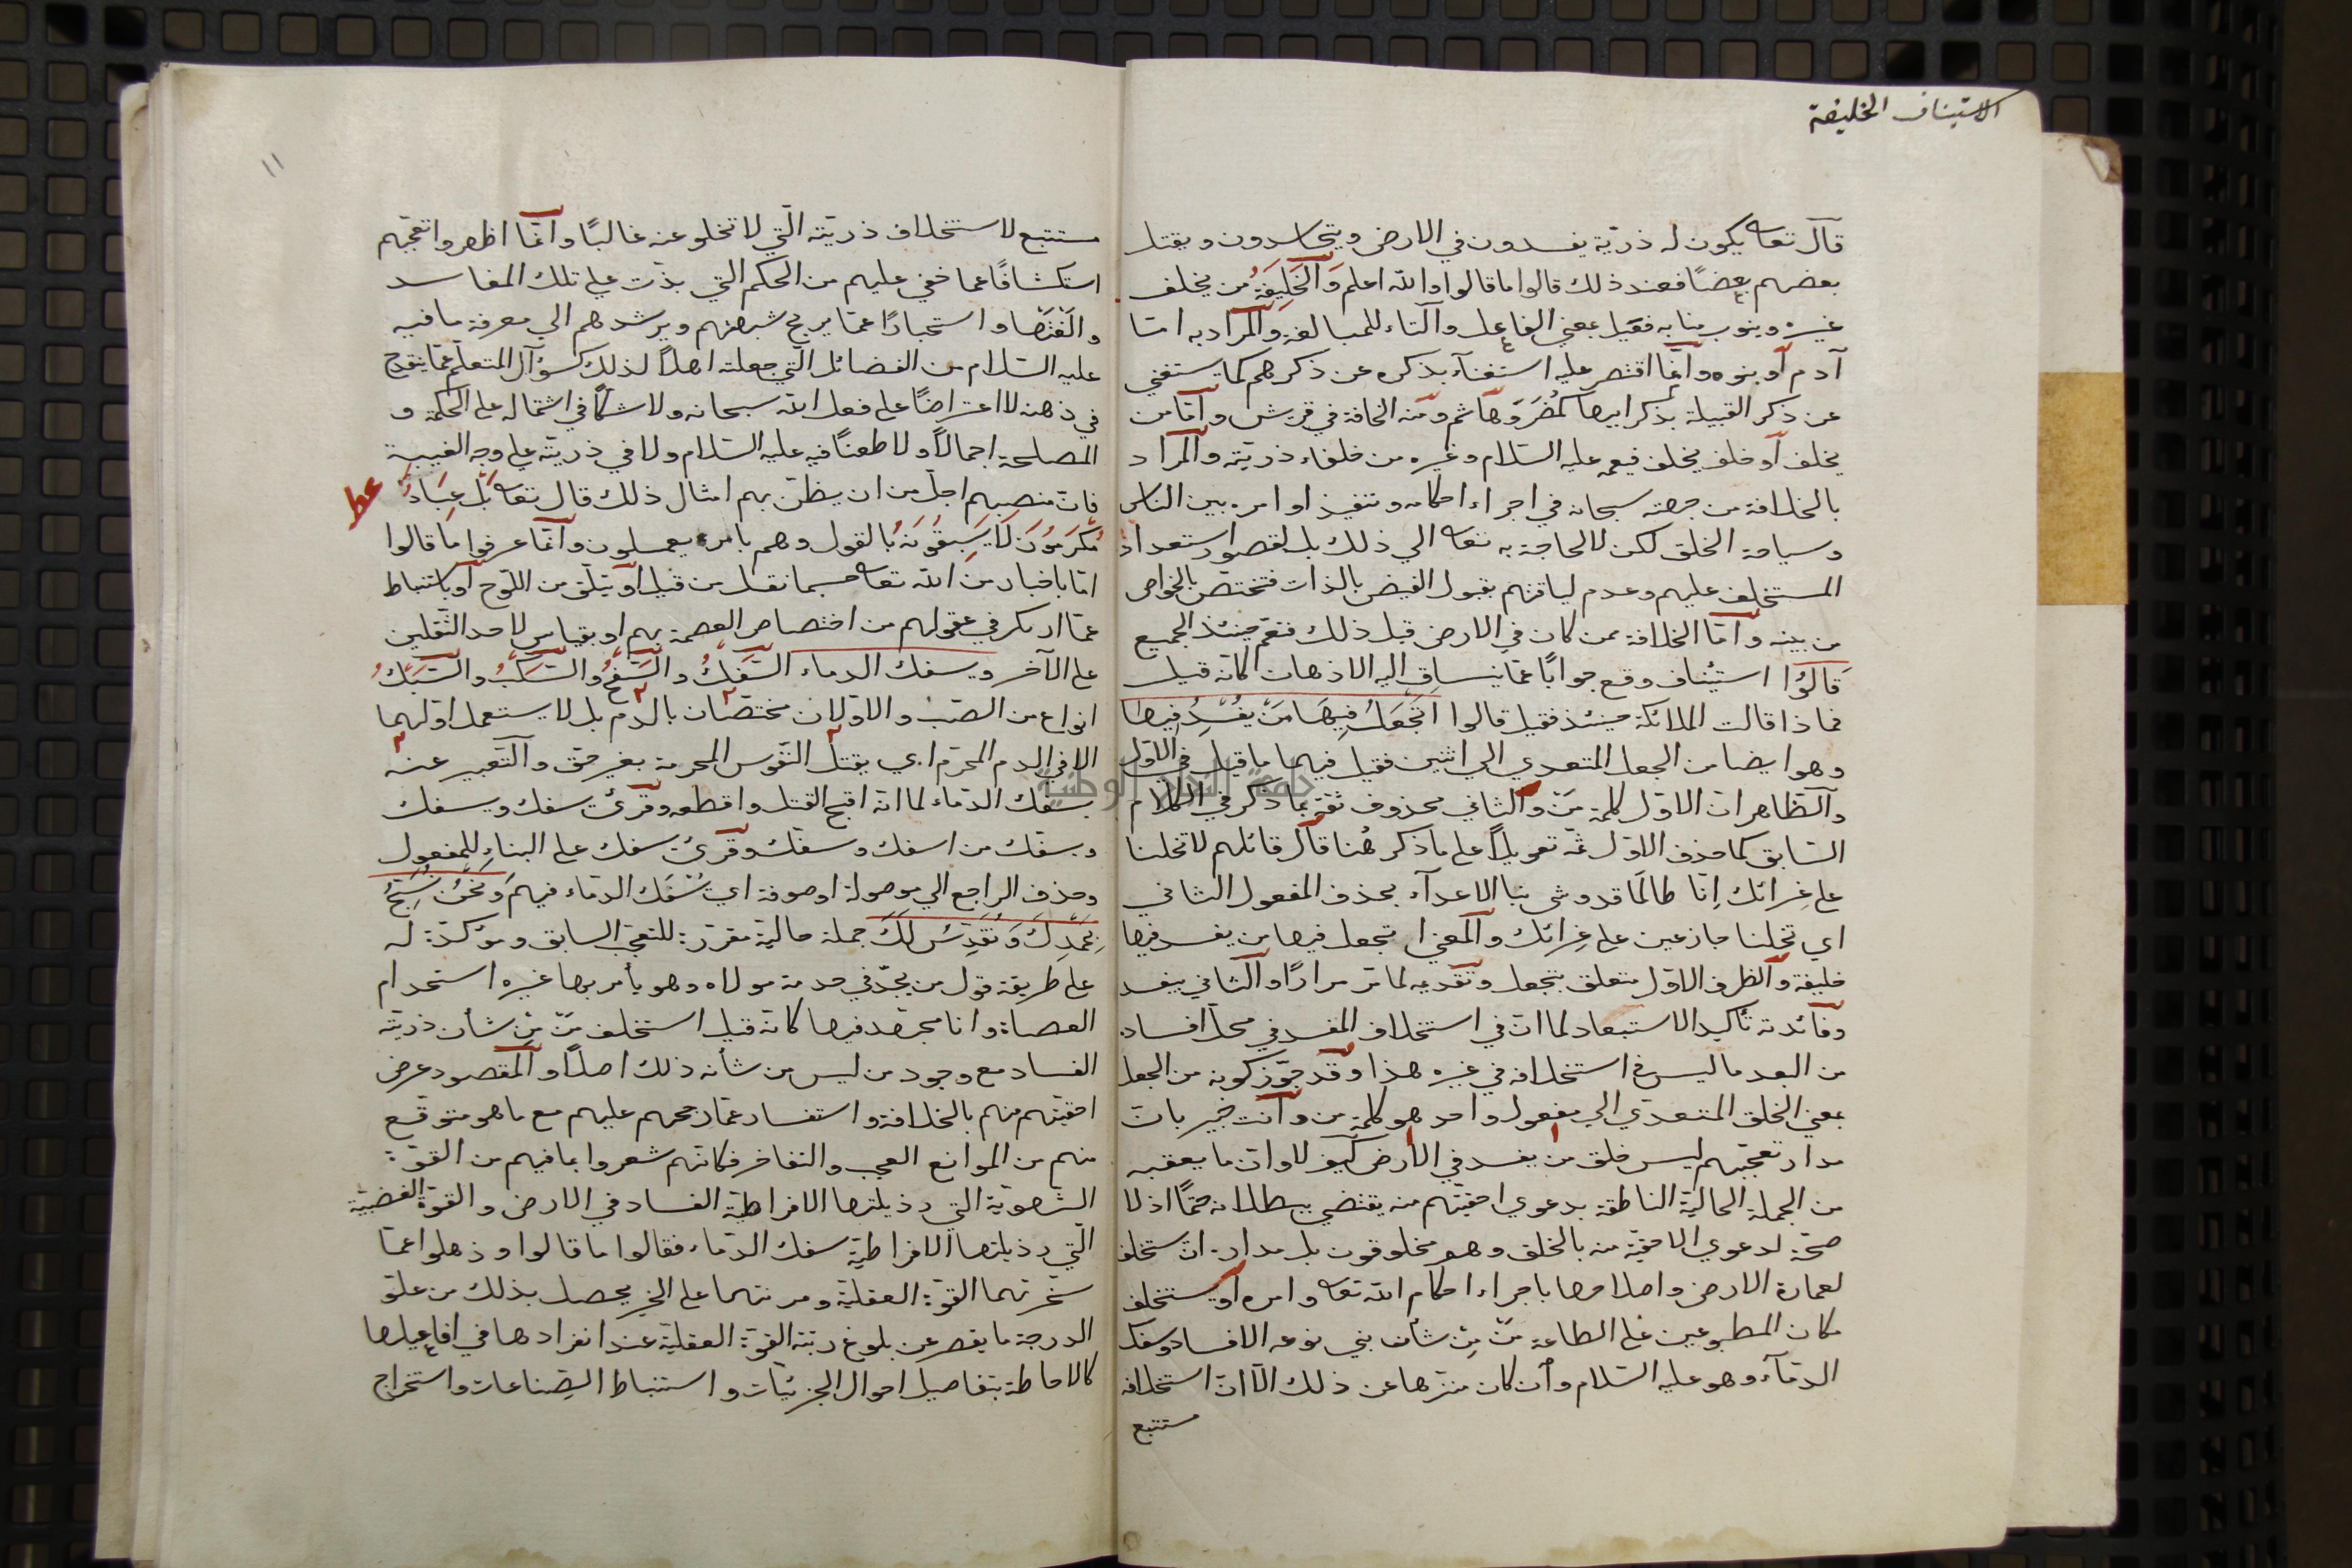 الاستيناف الخليفة
قال تعا يكون له ذرية يفسدون في الارض ويتحاسدون ويقتل
بعضهم بعضًا فعند ذلك قالوا ما قالوا والله اعلم وَالْخَلِيفَةُ من يخلف
غيره وينوب منابه فعيل بمعني الفاعل والتاء للمبالغة والمراد به امّا
آدم أو بنوه وانّما اقتصر عليه استغنآء بذكره عن ذكرهم كما يستغني
عن ذكر القبيلة بذكر ابيها كمُضَرَ وهاشم ومنه الخلافة في قريش وامّا من
يخلف أو خلف يخلف فيعمه عليه السّلام وغيره من خلفاء ذريّته والمراد
بالخلافة من جهته سبحانه في اجراء احكامه وتنفيذ اوامره بين الناس
وسياسة الخلق لكن لا لحاجة به تعا الي ذلك بل لقصور استعداد
المستخلف عليهم وعدم لياقتهم بقبول الفيض بالذات فتختص بالخواص
من بينه وامّا الخلافة ممن كان في الارض قبل ذلك فتعم حينئذ الجميع
قَالُوا استيناف وقع جوابًا عمّا ينساق اليه الاذهان كانّه قيل
فماذا قالت الملائكة حينئذ فقيل قالوا اَتَجْعَلُ فِيهَا مَنْ يُفْسِدُ فِيهَا
وهو ايضا من الجعل المتعدي الي اثنين فقيل فيهما ما قيل في الاوّل
والظّاهر انّ الاوّل كلمة مَنْ والثاني محذوف ثقة بما ذكر في الكلام
السّابق كما حذف الاوّل ثمّه تعويلاً على ما ذكر هُنا قال قائلهم لا تخلنا
على غِرائك اِنّا طالمَا قد وشى بنا الاعدآء بحذف المفعول الثاني
اي تخلنا جازعين على غِرائك والمعني ا تجعل فيها من يفسد فيها
خليفة والظرف الاوّل متعلق بتجعل وتقديمه لما مرّ مرارًا والثاني بيفسد
وفائدته تأكيد الاستبعاد لما انّ في استخلاف المفسد في محلّ افساده
من البعد ما ليس في استخلافه في غيره هذا وقد جوّز كونه من الجعل
بمعني الخلق المتعدّي الي مفعول واحد هو كلمة من وانت خبير بانّ
مدار تعجّبهم ليس خلق من يفسد في الارض كيف لا وانّ ما يعقبه
من الجملة الحاليّة الناطقة بدعوي احقيّتهم منه يقتضي ببطلانه حتمًا اذ لا
صحّة لدعوي الاحقيّة منه بالخلق وهم مخلوقون بل مداره ان يستخلف
لعمارة الارض واصلاحها باجراء احكام الله تعا واوامره أو يستخلف
مكان المطبوعين على الطاعة مَنْ مِنْ شأن بني نوعه الافساد وسفك
الدمآء وهو عليه السّلام وان كان منزّها عن ذلك الاّ انّ استخلافه
مستتبع
١١
مستتبع لاستخلاف ذريّته الّتي لا تخلو عنه غالبًا وانّما اظهروا تعجّبهم
استكشافًا عما خفي عليهم من الحكم التي بذّت على تلك المفاسد
والغتها واستخبارًا عمّا يزيح شبهتهم ويرشدهم الي معرفة ما فيه
عليه السّلام من الفضائل الّتي جعلته اهلاً لذلك كسؤال المتعلّم عمّا ينقدح
في ذهنه لا اعتراضًا على فعل الله سبحانه ولا شكًّا في اشتماله على الحكمة و
المصلحة اجمالاً ولا طعنًا فيه عليه السّلام ولا في ذريّته على وجه الغيبة
فانّ منصبهم اجلّ من ان يظنّ بهم امثال ذلك قال تعا بَلْ عِبَادٌ
عظ
مُكْرَمُونَ لَا يَسْبِقُونَهُ بالقول وهم بامره يعملون وانّما عرفوا ما قالوا
امّا باخبار من الله تعا حسبما نقل من قبل أو بتلقّ من اللّوح أو باستنباط
عمّا ارتكز في عقولهم من اختصاص العصمة بهم او بقياس لاحد الثّقلين
على الآخر ويسفك الدماء السَّفْكُ والسَّفْحُ والسَّكْبُ والسَّبْكُ
انواع من الصّبّ والاوّلان مختصّان بالدم بل لا يستعمل اوّلهما
الا في الدم المحرّم اي يقتل النّفوس المحرمة بغير حق والتّعبير عنه
بسفك الدّماء لما انّه اقبح القتل وافظعه وقرئ يسفك ويسفك
ويسفّك من اسفك وسفّك وقرئ يسفك على البناءِ للمفعول
وحذف الراجع الي مَن موصولة او موصوفة اي يُسْفَك الدّماء فيهم وَنَحْنُ نُسَبِّحُ
بِحَمْدِكَ وَنُقَدِّسُ لَكَ جملة حالية مقرّرة للتعجّب السابق ومؤكّدة له
على طريقة قول من يجدّ في خدمة مولاه وهو يأمر بها غيره استخدام
العصاة وانا مجتهد فيها كانّه قيل استخلف مَنْ مِنْ شأن ذريّته
الفساد مع وجود من ليس من شأنه ذلك اصلاً والمقصود عرض
احقيّتهم منهم بالخلافة واستفسار عمّا رجّحهم عليهم مع ما هو متوقّع
منهم من الموانع العجب والتفاخر فكانّهم شعروا بما فيهم من القوّة
الشّهويّة التي رذيلتها الافراطيّة الفساد في الارض والقوّة الغضبيّة
الّتي رذيلتها الافراطيّة سفك الدّماء فقالوا ما قالوا وذهلوا عمّا
سخرتهما القوّة العقليّة ومرنتهما على الخير يحصل بذلك من علوّ
الدرجة ما يقصر عن بلوغ رتبة القوّة العقليّة عند انفرادها في افاعيلها
كالاحاطة بتفاصيل احوال الجزئيّات واستنباط الصِّناعات واستخراج